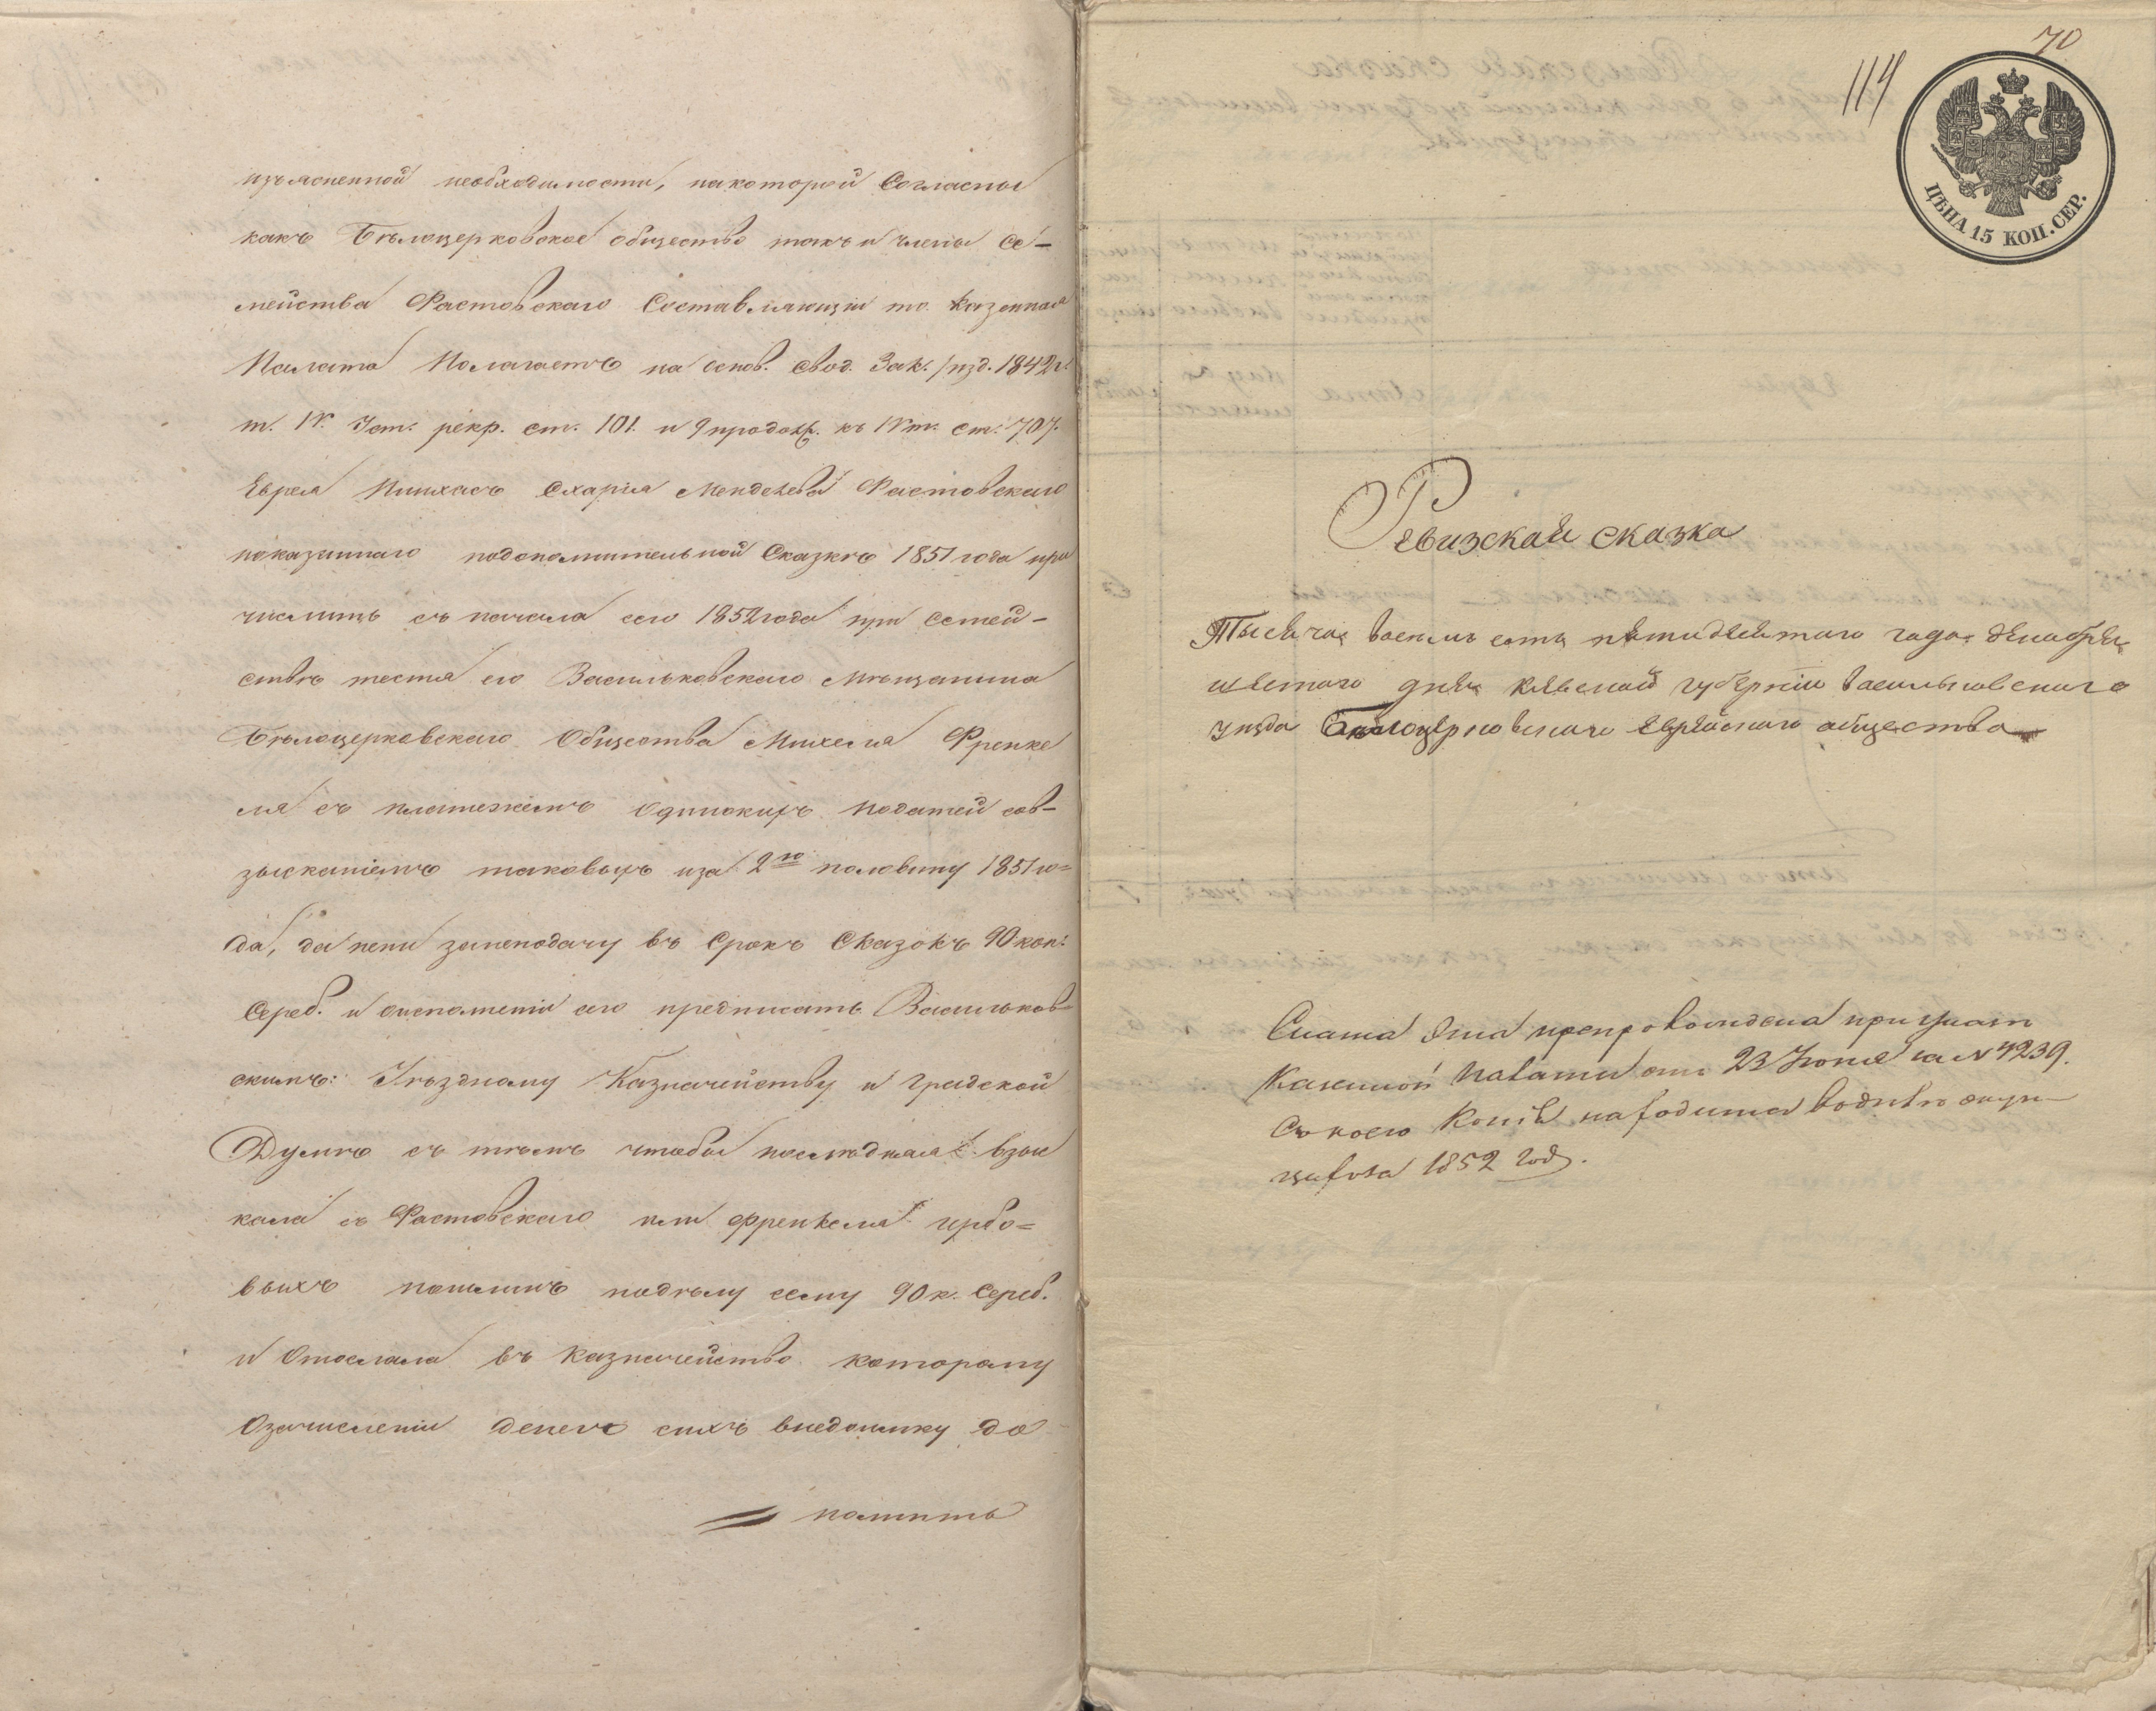 изъясненной необходимости, накоторой Согласны
какъ Бѣлоцерковское общество такъ и члены Се-
мейства Фастовскаго Составляющіи то Казенная
Палата Полагаетъ на основ. свод. Зак. /изд. 1842 г.
т. IV. Уст. рекр. ст. 101. и 9 продолж. къ IV т. ст. 707.
Еврея Пинхасъ Схарія Менделева Фастовскаго
показаннаго подополнительной Сказкѣ 1851 года при
числить съ начала сего 1852 года при Семей-
ствѣ тестя его Васильковскаго Мѣщанина
Бѣлоцерковскаго Общества Михеля Френке
ля съ платежемъ Одинокихъ податей сов-
зысканіемъ таковыхъ иза 2ю половину 1851 го=
да, да пени занеподачу въ Срокъ Сказокъ 90 коп.
Сереб. и оисполненіи сего предписать Васильков-
скимъ: Уѣздному Казначейству и Градской
Думѣ съ тѣмъ чтобы послѣдняя взыс
кала съ Фастовскаго или Френкеля гербо=
выхъ пошлинъ подѣлу сему 90 к. Сереб.
и Отослала въ Казначейство которому
Озачисленіи денегъ сихъ внедоимку до
полнить
70
114
ЦѢНА 15 КОП. СЕР.
Ревизская сказка
Тысяча восемь сотъ пятидесятого года декабря
шестого дня Кіевской губерніи Васильковскаго
уѣзда Бѣлоцерковскаго Еврейскаго общества
Сказка Эта препровождена при указѣ
Казенной Палаты отъ 23 Іюня за № 4239.
Съ коего Копія находится водѣлѣ
1852 года.